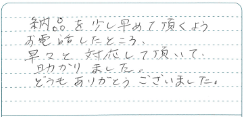 納品を少し早めて頂くよう
お電話したところ、
早々と対応して頂いて、
助かりました。
どうもありがとうございました。